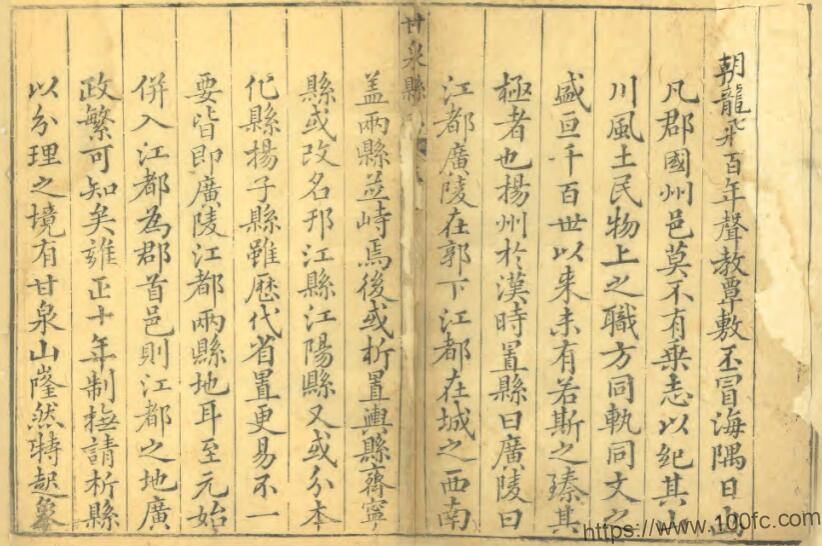 朝龍飛百年聲教覃敷丕冒海隅日出
凡郡國州邑莫不有乗志以紀其山
川風土民物上之職方同軌同文之
盛亘千百世以来未有若斯之臻其
極者也揚州於漢時置縣曰廣陵曰
江都廣陵在郭下江都在城之西南
甘泉縣
盖兩縣並峙焉後或析置輿縣齊寧
縣或改名邗江縣江陽縣又或分本
化縣揚子縣雖歷代省置更易不一
要皆即廣陵江都兩縣地耳至元始
併入江都為郡首邑則江都之地廣
政繁可知矣雍正十年制撫請析縣
以分理之境有甘泉山隆然特起
https://www.100fc.com